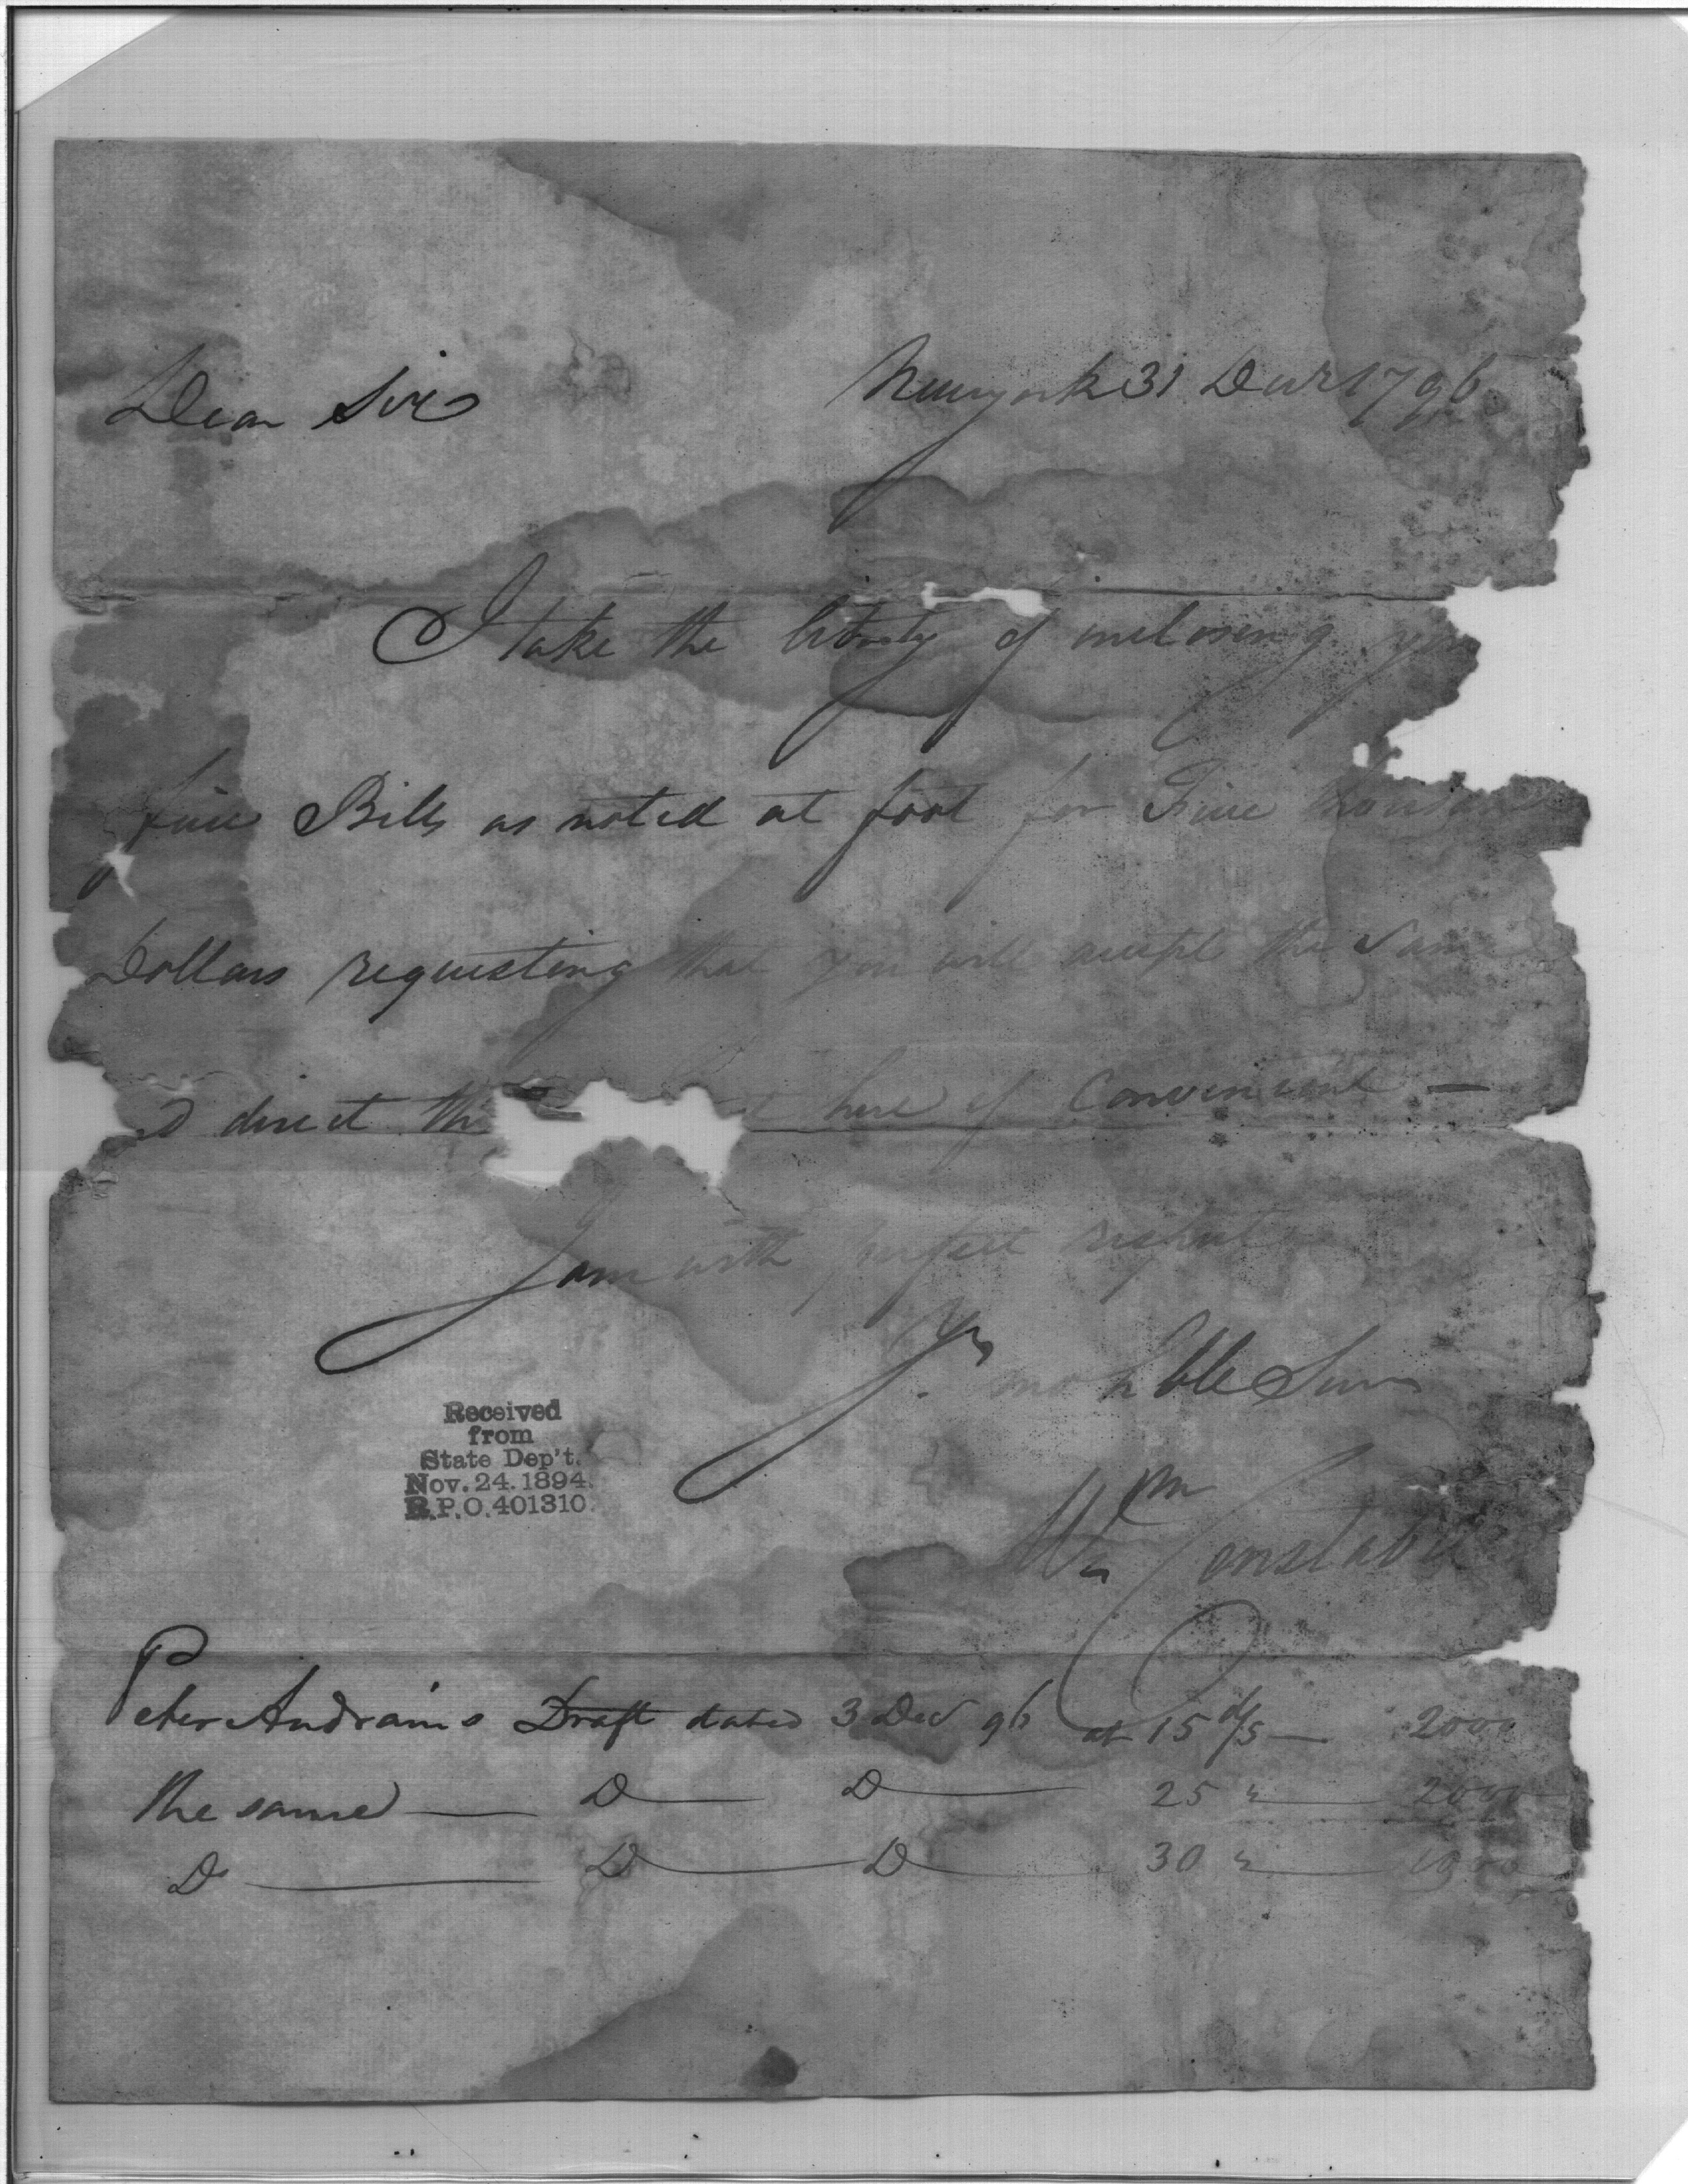 Dear Sir
Newyork 31 Decr 1796
I take the liberty of inclosing you
five Bills as noted at foot for Five thousand
Dollars requesting that you will accept the same
direct th here if Convenient —
I am with perfect respect
Yr mo h Ble Servt
Wm
Wm Constable
Peter Audrain's Draft dated 3 Decr 96 at 15 d/s — 2000
the same — Do — Do — 25 " — 2000
Do — Do — Do — 30 " — 1000
Received
from
State Dep't.
Nov. 24. 1894.
R.P.O. 401310.